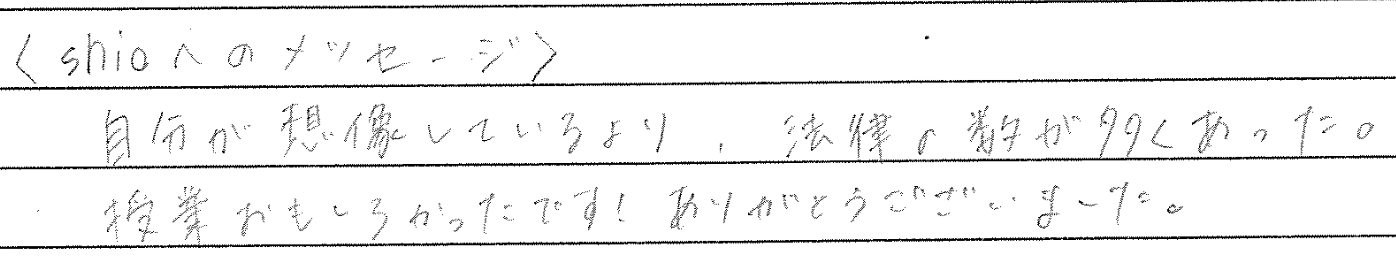 〈shioへのメッセージ〉
自分が想像しているより、法律の数が多くあった。
授業おもしろかったです！ありがとうございました。